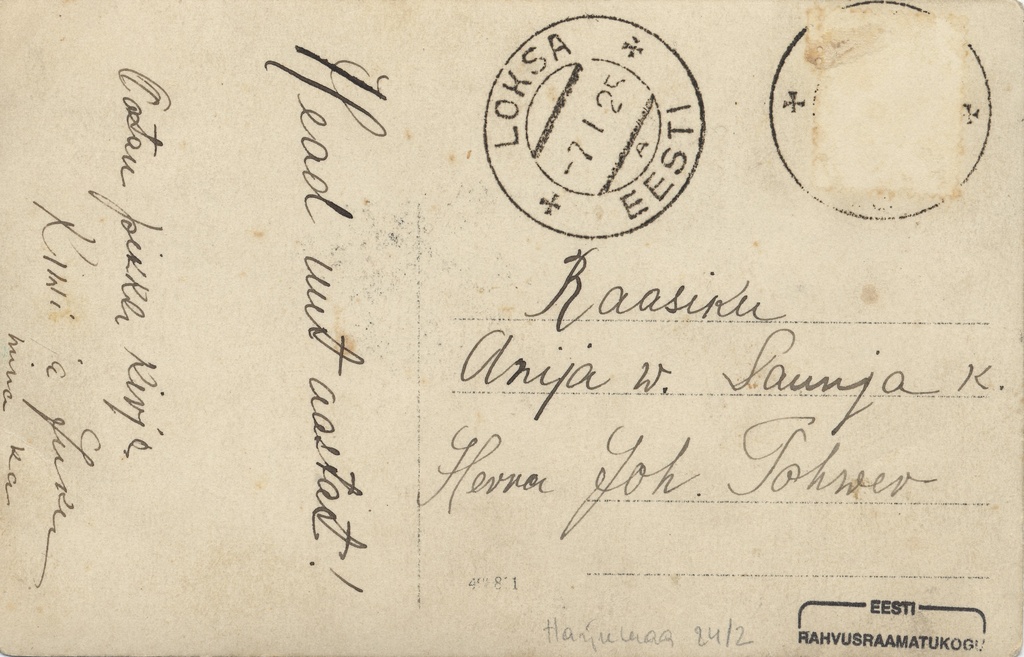 Head uut aastat!
Ootan pikka kirja.
mina ka
LOKSA
-7 1 25
A
EESTI
Raasiku
Anija w. Saunja k.
Herra Joh. Tohwer
Harjumaa 24/2
EESTI
RAHVUSRAAMATUKOGU